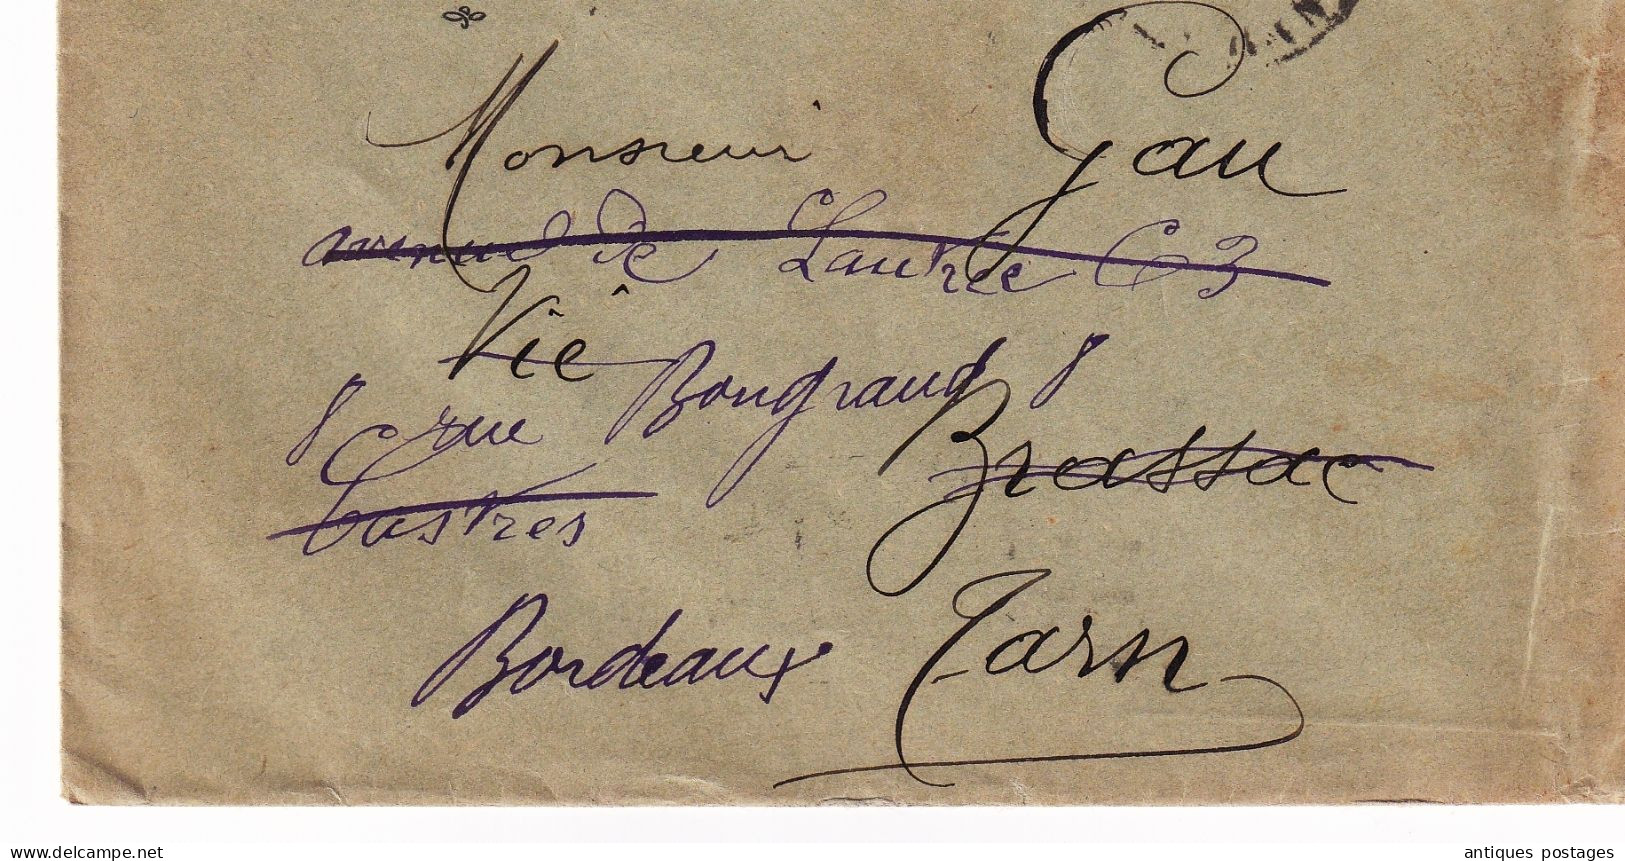 Monsieur Gau
avenue de Lautrec 63
Vié
8 rue Bongrand 8
Brassac
Castres
Bordeaux
Tarn
antiques postages
delcampe.net